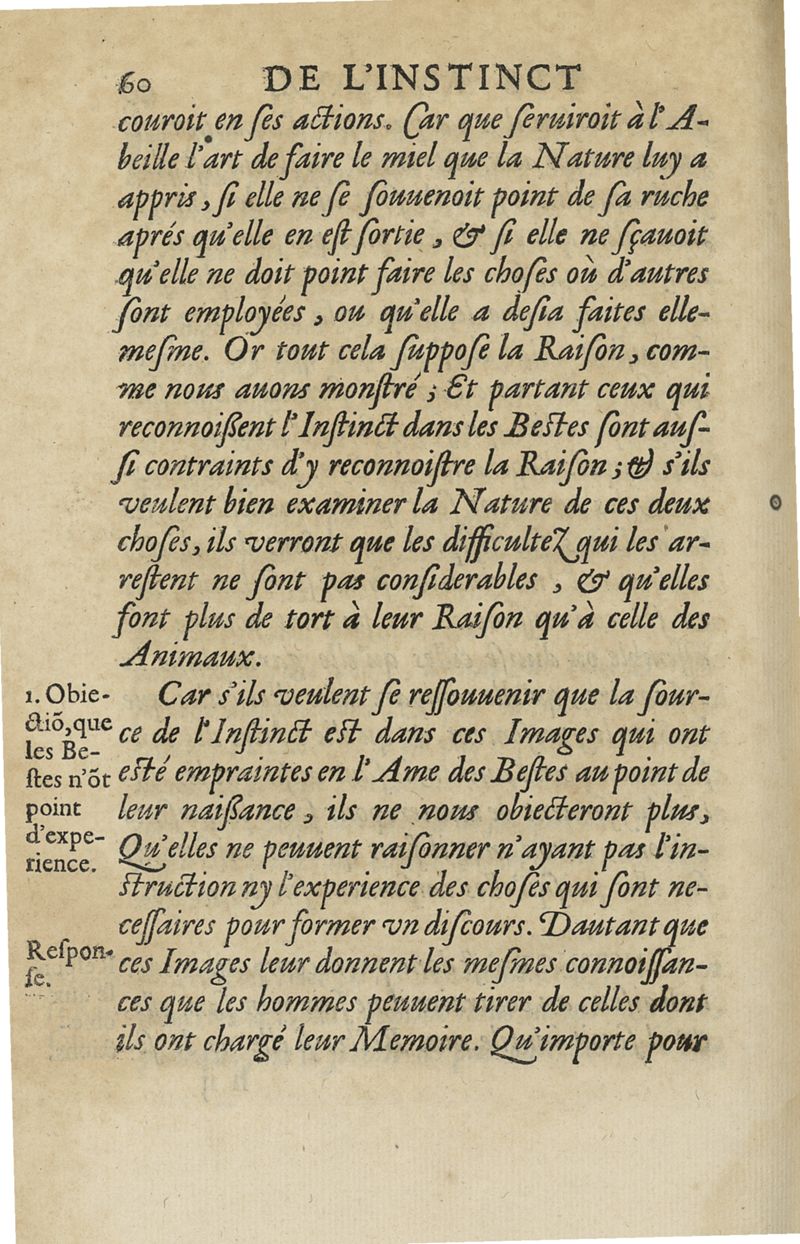 60 DE L'INSTINCT
couroit en ſes actions. Car que ſeruiroit à l'A-
beille l'art de faire le miel que la Nature luy a
appris, ſi elle ne ſe ſouuenoit point de ſa ruche
aprés qu'elle en eſt ſortie, & ſi elle ne ſçauoit
qu'elle ne doit point faire les choſes où d'autres
ſont employées, ou qu'elle a deſia faites elle-
meſme. Or tout cela ſuppoſe la Raiſon, com-
me nous auons monſtré; Et partant ceux qui
reconnoiſſent l'Inſtinct dans les Beſtes ſont auſ-
ſi contraints d'y reconnoiſtre la Raiſon; & s'ils
veulent bien examiner la Nature de ces deux
choſes, ils verront que les difficultez qui les ar-
reſtent ne ſont pas conſiderables, & qu'elles
font plus de tort à leur Raiſon qu'à celle des
Animaux.
Car s'ils veulent ſe reſſouuenir que la ſour-
ce de l'Inſtinct eſt dans ces Images qui ont
eſté empraintes en l'Ame des Beſtes au point de
leur naiſſance, ils ne nous obiecteront plus,
Qu'elles ne peuuent raiſonner n'ayant pas l'in-
ſtruction ny l'experience des choſes qui ſont ne-
ceſſaires pour former vn diſcours. Dautant que
ces Images leur donnent les meſmes connoiſſan-
ces que les hommes peuuent tirer de celles dont
ils ont chargé leur Memoire. Qu'importe pour
1. Obie-
ctiō, que
les Be-
ſtes n'ōt
point
d'expe-
rience.
Reſpon-
ſe.